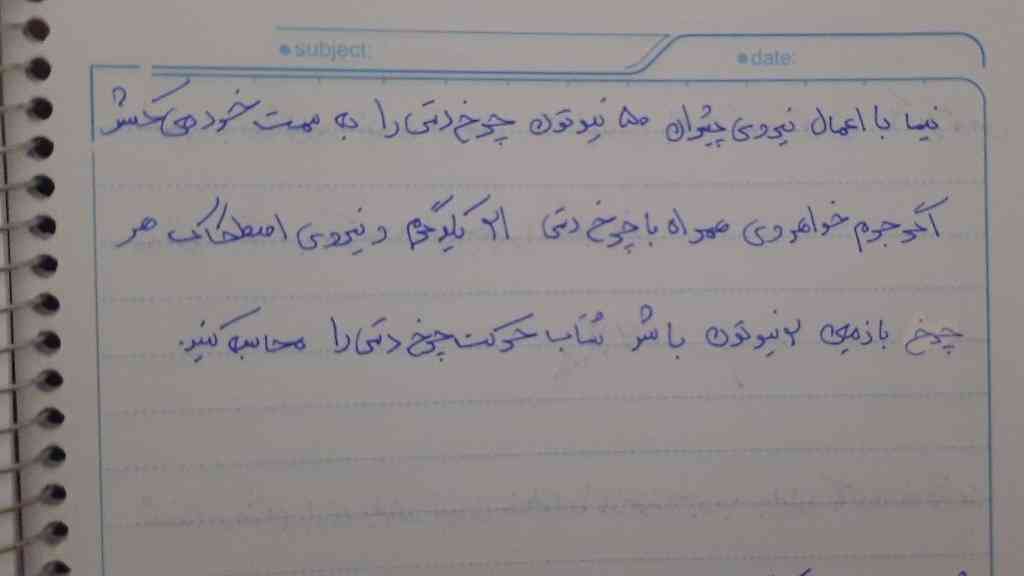 subject:
date:
نیما با اعمال نیروی پیشران ۵۰ نیوتون چرخ دستی را به سمت خود می کشد
اگر جرم خواهر وی همراه با چرخ دستی ۲۱ کیلوگرم و نیروی اصطکاک هر
چرخ با زمین ۲ نیوتون باشد شتاب حرکت چرخ دستی را محاسبه کنید.